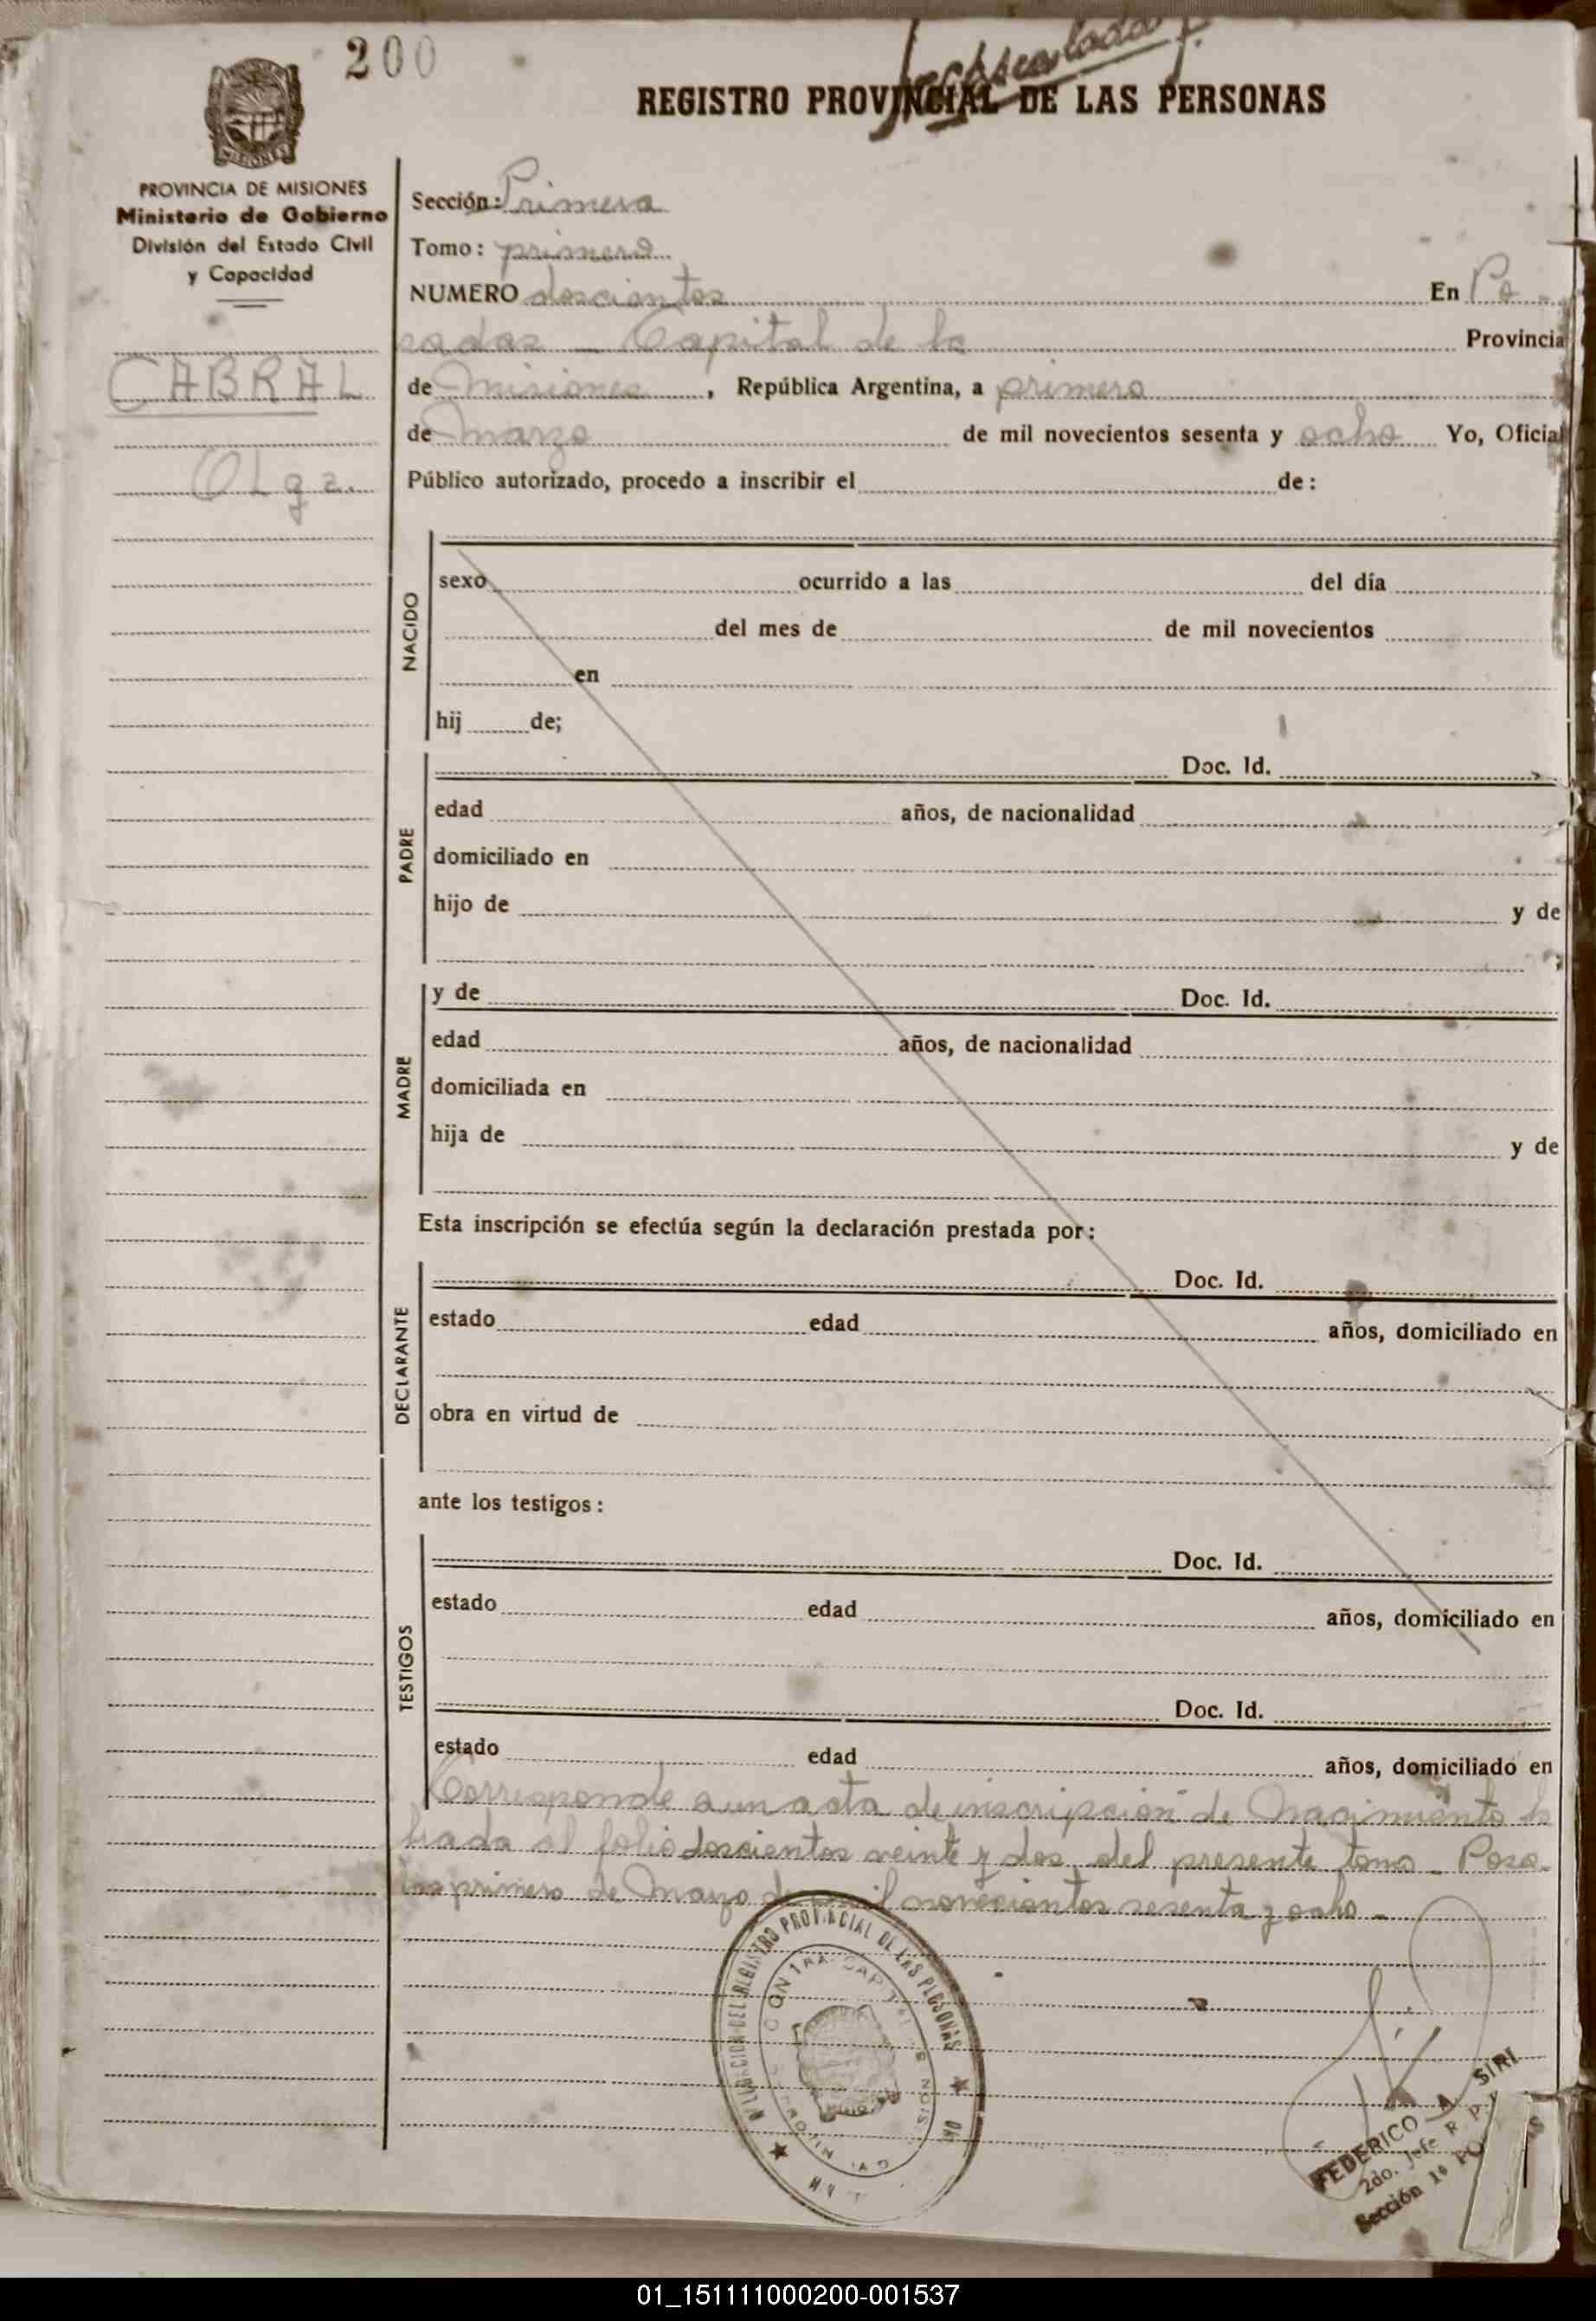 200
REGISTRO PROVINCIAL DE LAS PERSONAS
MISIONES
PROVINCIA DE MISIONES
Ministerio de Gobierno
División del Estado Civil
y Capacidad
CABRAL
Olga.
Sección: Primera
Tomo: primero
NUMERO doscientos En Po-
sadas - Capital de la Provincia
de Misiones, República Argentina, a primero
de Marzo de mil novecientos sesenta y ocho Yo, Oficial
Público autorizado, procedo a inscribir el de:
NACIDO
sexo ocurrido a las del día
del mes de de mil novecientos
en
hij de;
PADRE
Doc. Id.
edad años, de nacionalidad
domiciliado en
hijo de y de
MADRE
y de Doc. Id.
edad años, de nacionalidad
domiciliada en
hija de y de
Esta inscripción se efectúa según la declaración prestada por:
DECLARANTE
Doc. Id.
estado edad años, domiciliado en
obra en virtud de
ante los testigos:
TESTIGOS
Doc. Id.
estado edad años, domiciliado en
Doc. Id.
estado edad años, domiciliado en
Corresponde a un acta de inscripción de Nacimiento la
brada al folio doscientos veinte y dos, del presente tomo - Posa-
das primero de Marzo de mil novecientos sesenta y ocho -
DEL REGISTRO PROVINCIAL DE LAS PERSONAS
FEDERICO A. SIRI
2do. Jefe R. P.
Sección 1º
01_151111000200-001537